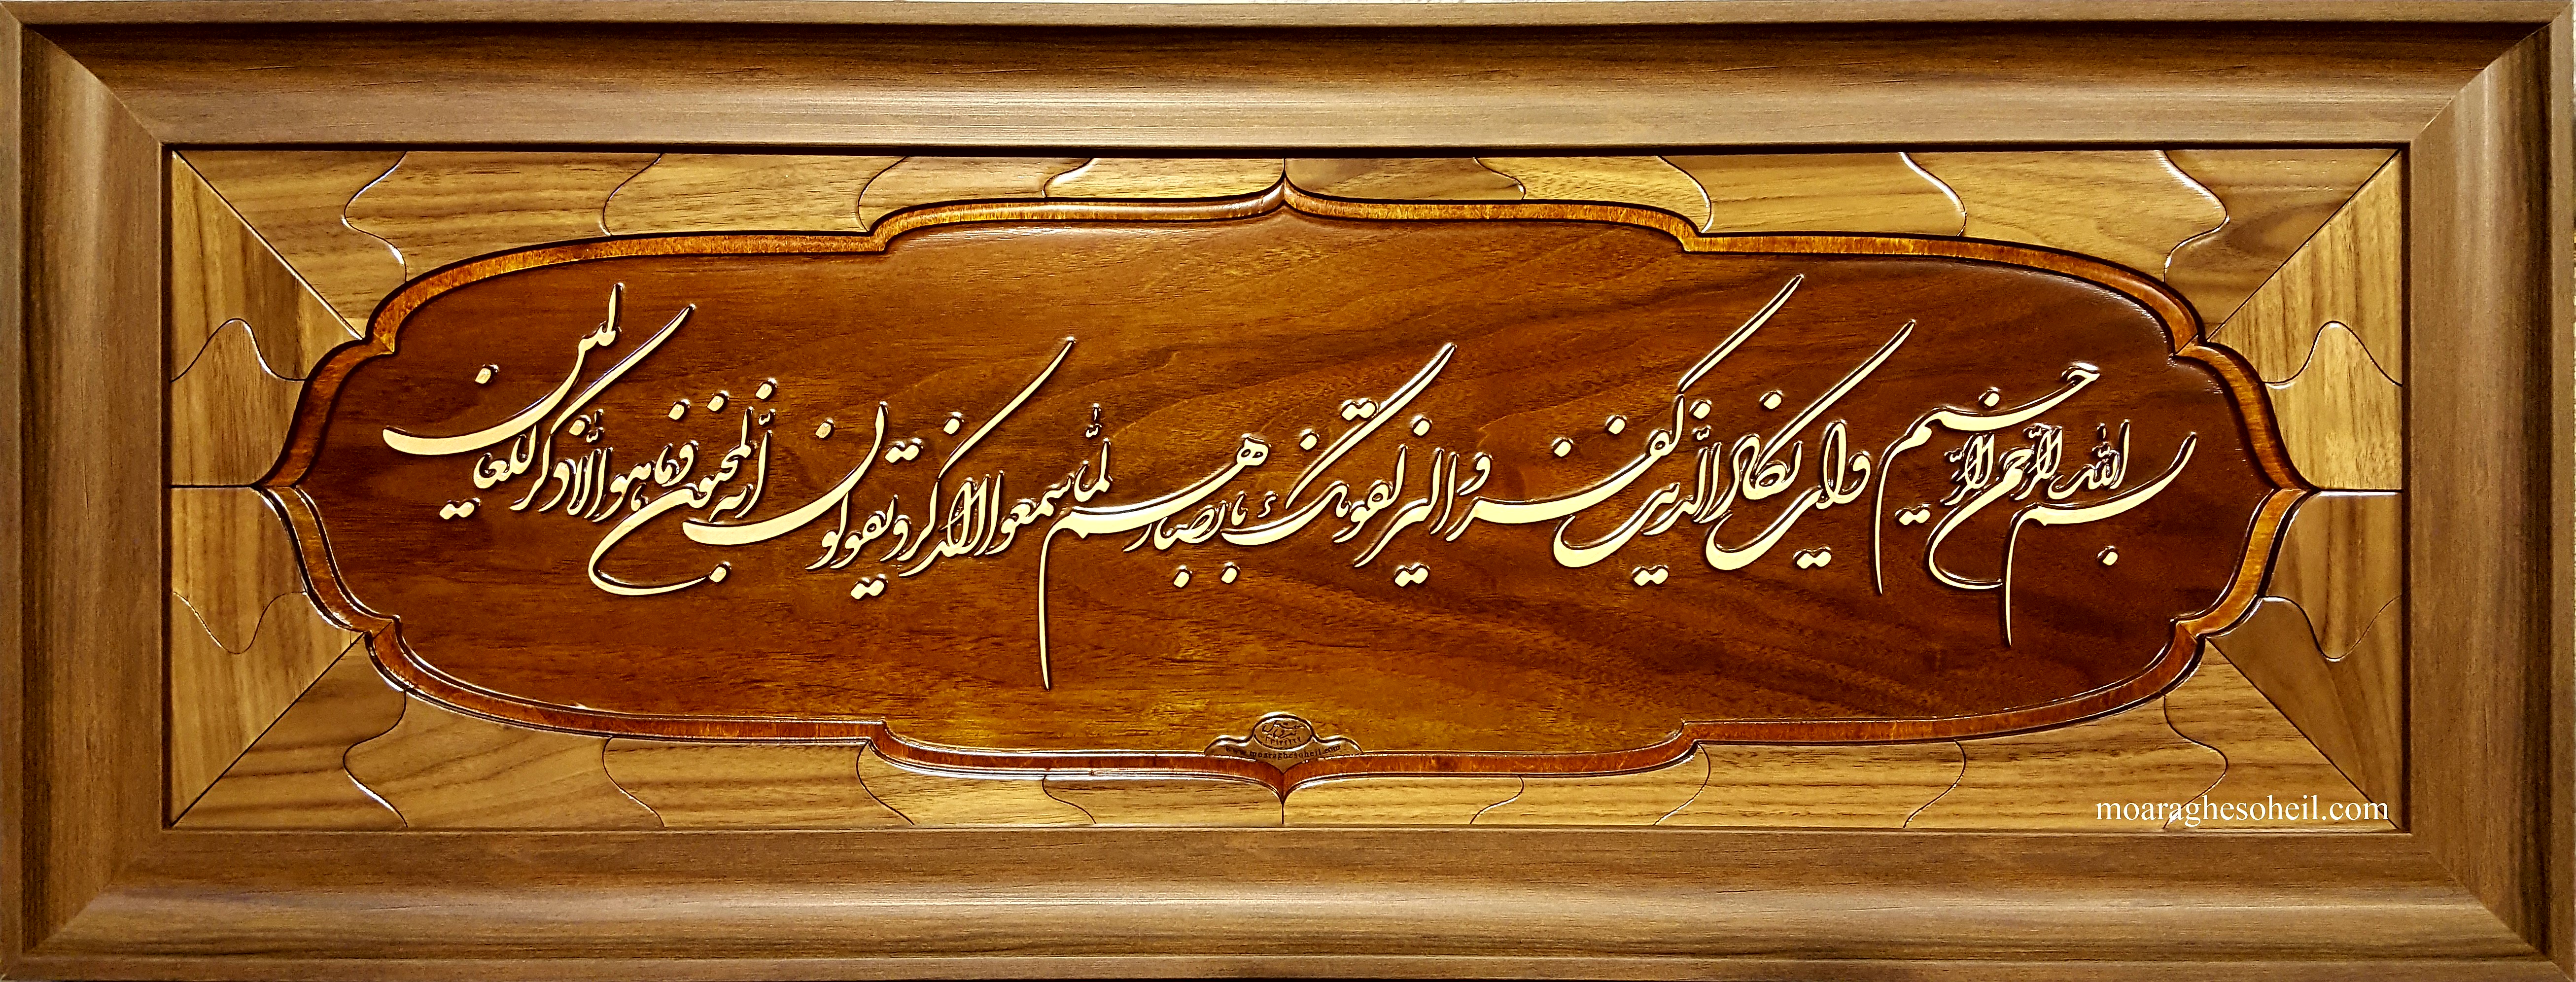 بسم الله الرحمن الرحیم وان یکاد الذین کفروا لیزلقونک بابصارهم لما سمعوا الذکر و یقولون انه لمجنون وما هو الا ذکر للعالمین
www.moaraghesoheil.com
moaraghesoheil.com